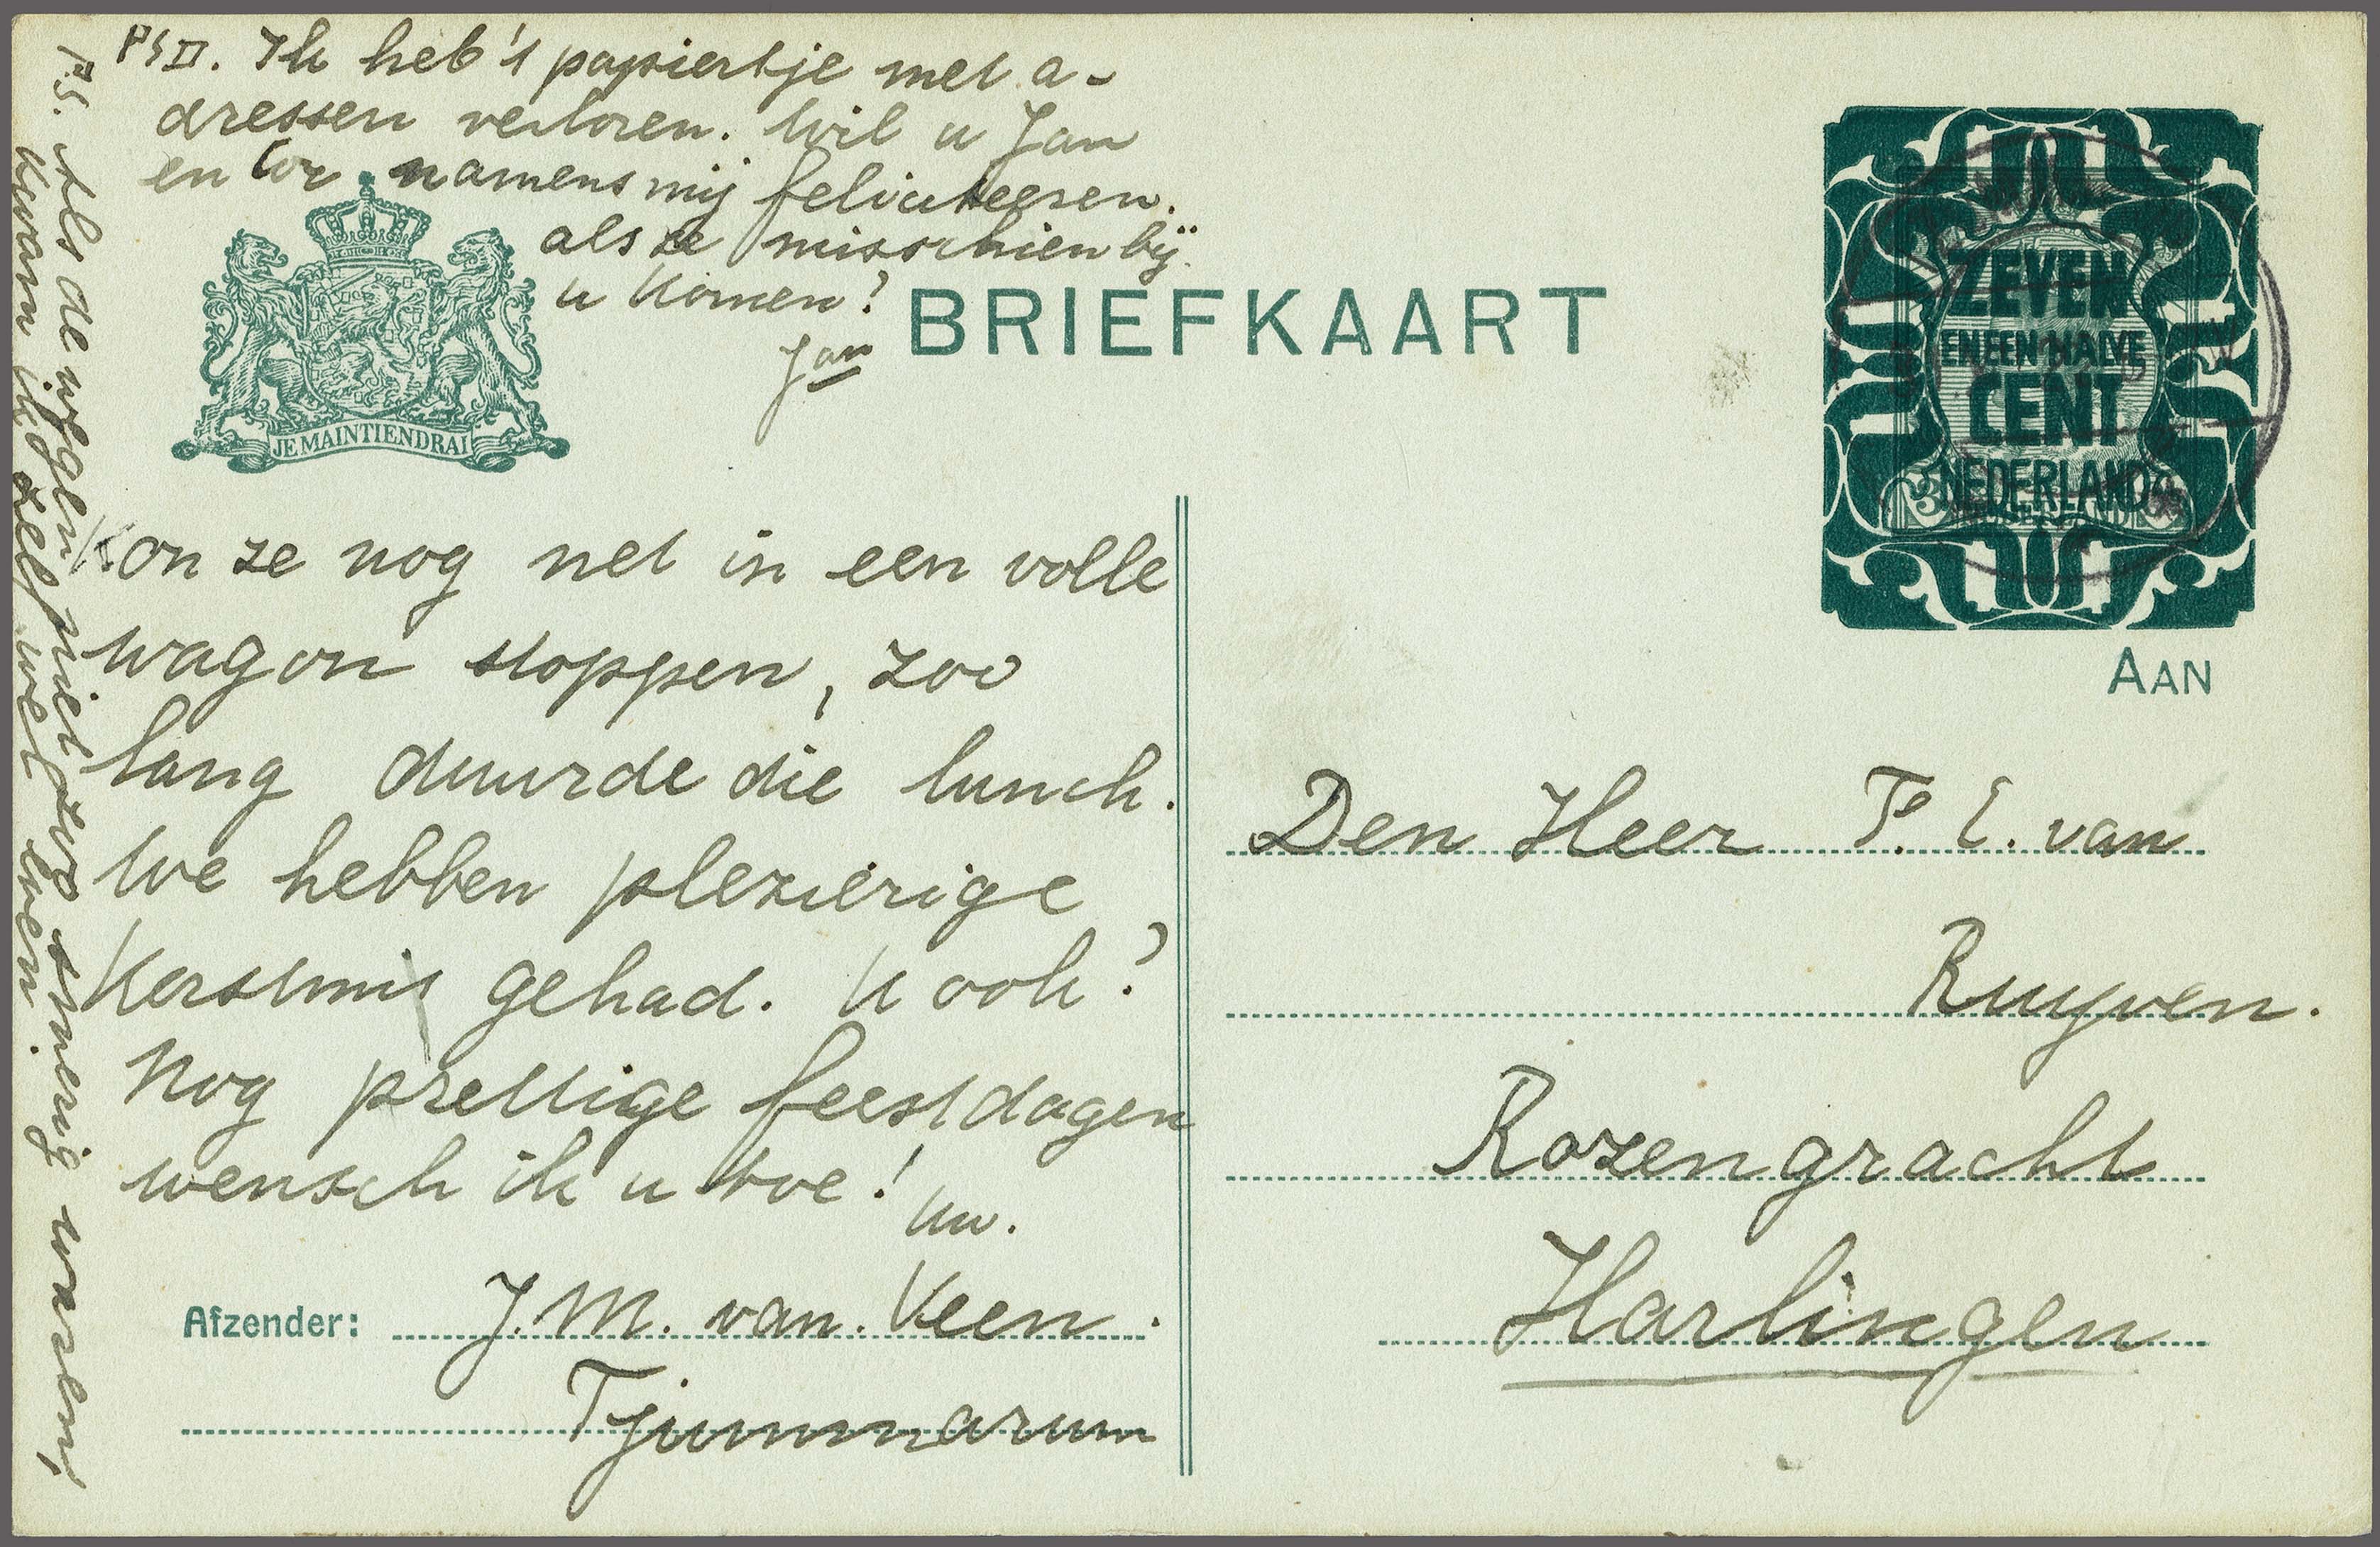 PS II. Ik heb 't papiertje met a-
dressen verloren. Wil u Jan
en Cor namens mij feliciteeren.
als ze misschien bij
u komen?
Jan
BRIEFKAART
JE MAINTIENDRAI
ZEVEN
EN EEN HALVE
CENT
NEDERLAND
P.S. Als de wegen niet zoo smerig waren,
kwam ik zelf wel even.
Kon ze nog net in een volle
wagon stoppen, zoo
lang duurde die lunch.
We hebben plezierige
Kerstmis gehad. U ook?
Nog prettige feestdagen
wensch ik u toe!
Uw.
Afzender: J. M. van Veen.
Tjummarum
AAN
Den Heer P. E. van
Ruyven.
Rozengracht
Harlingen